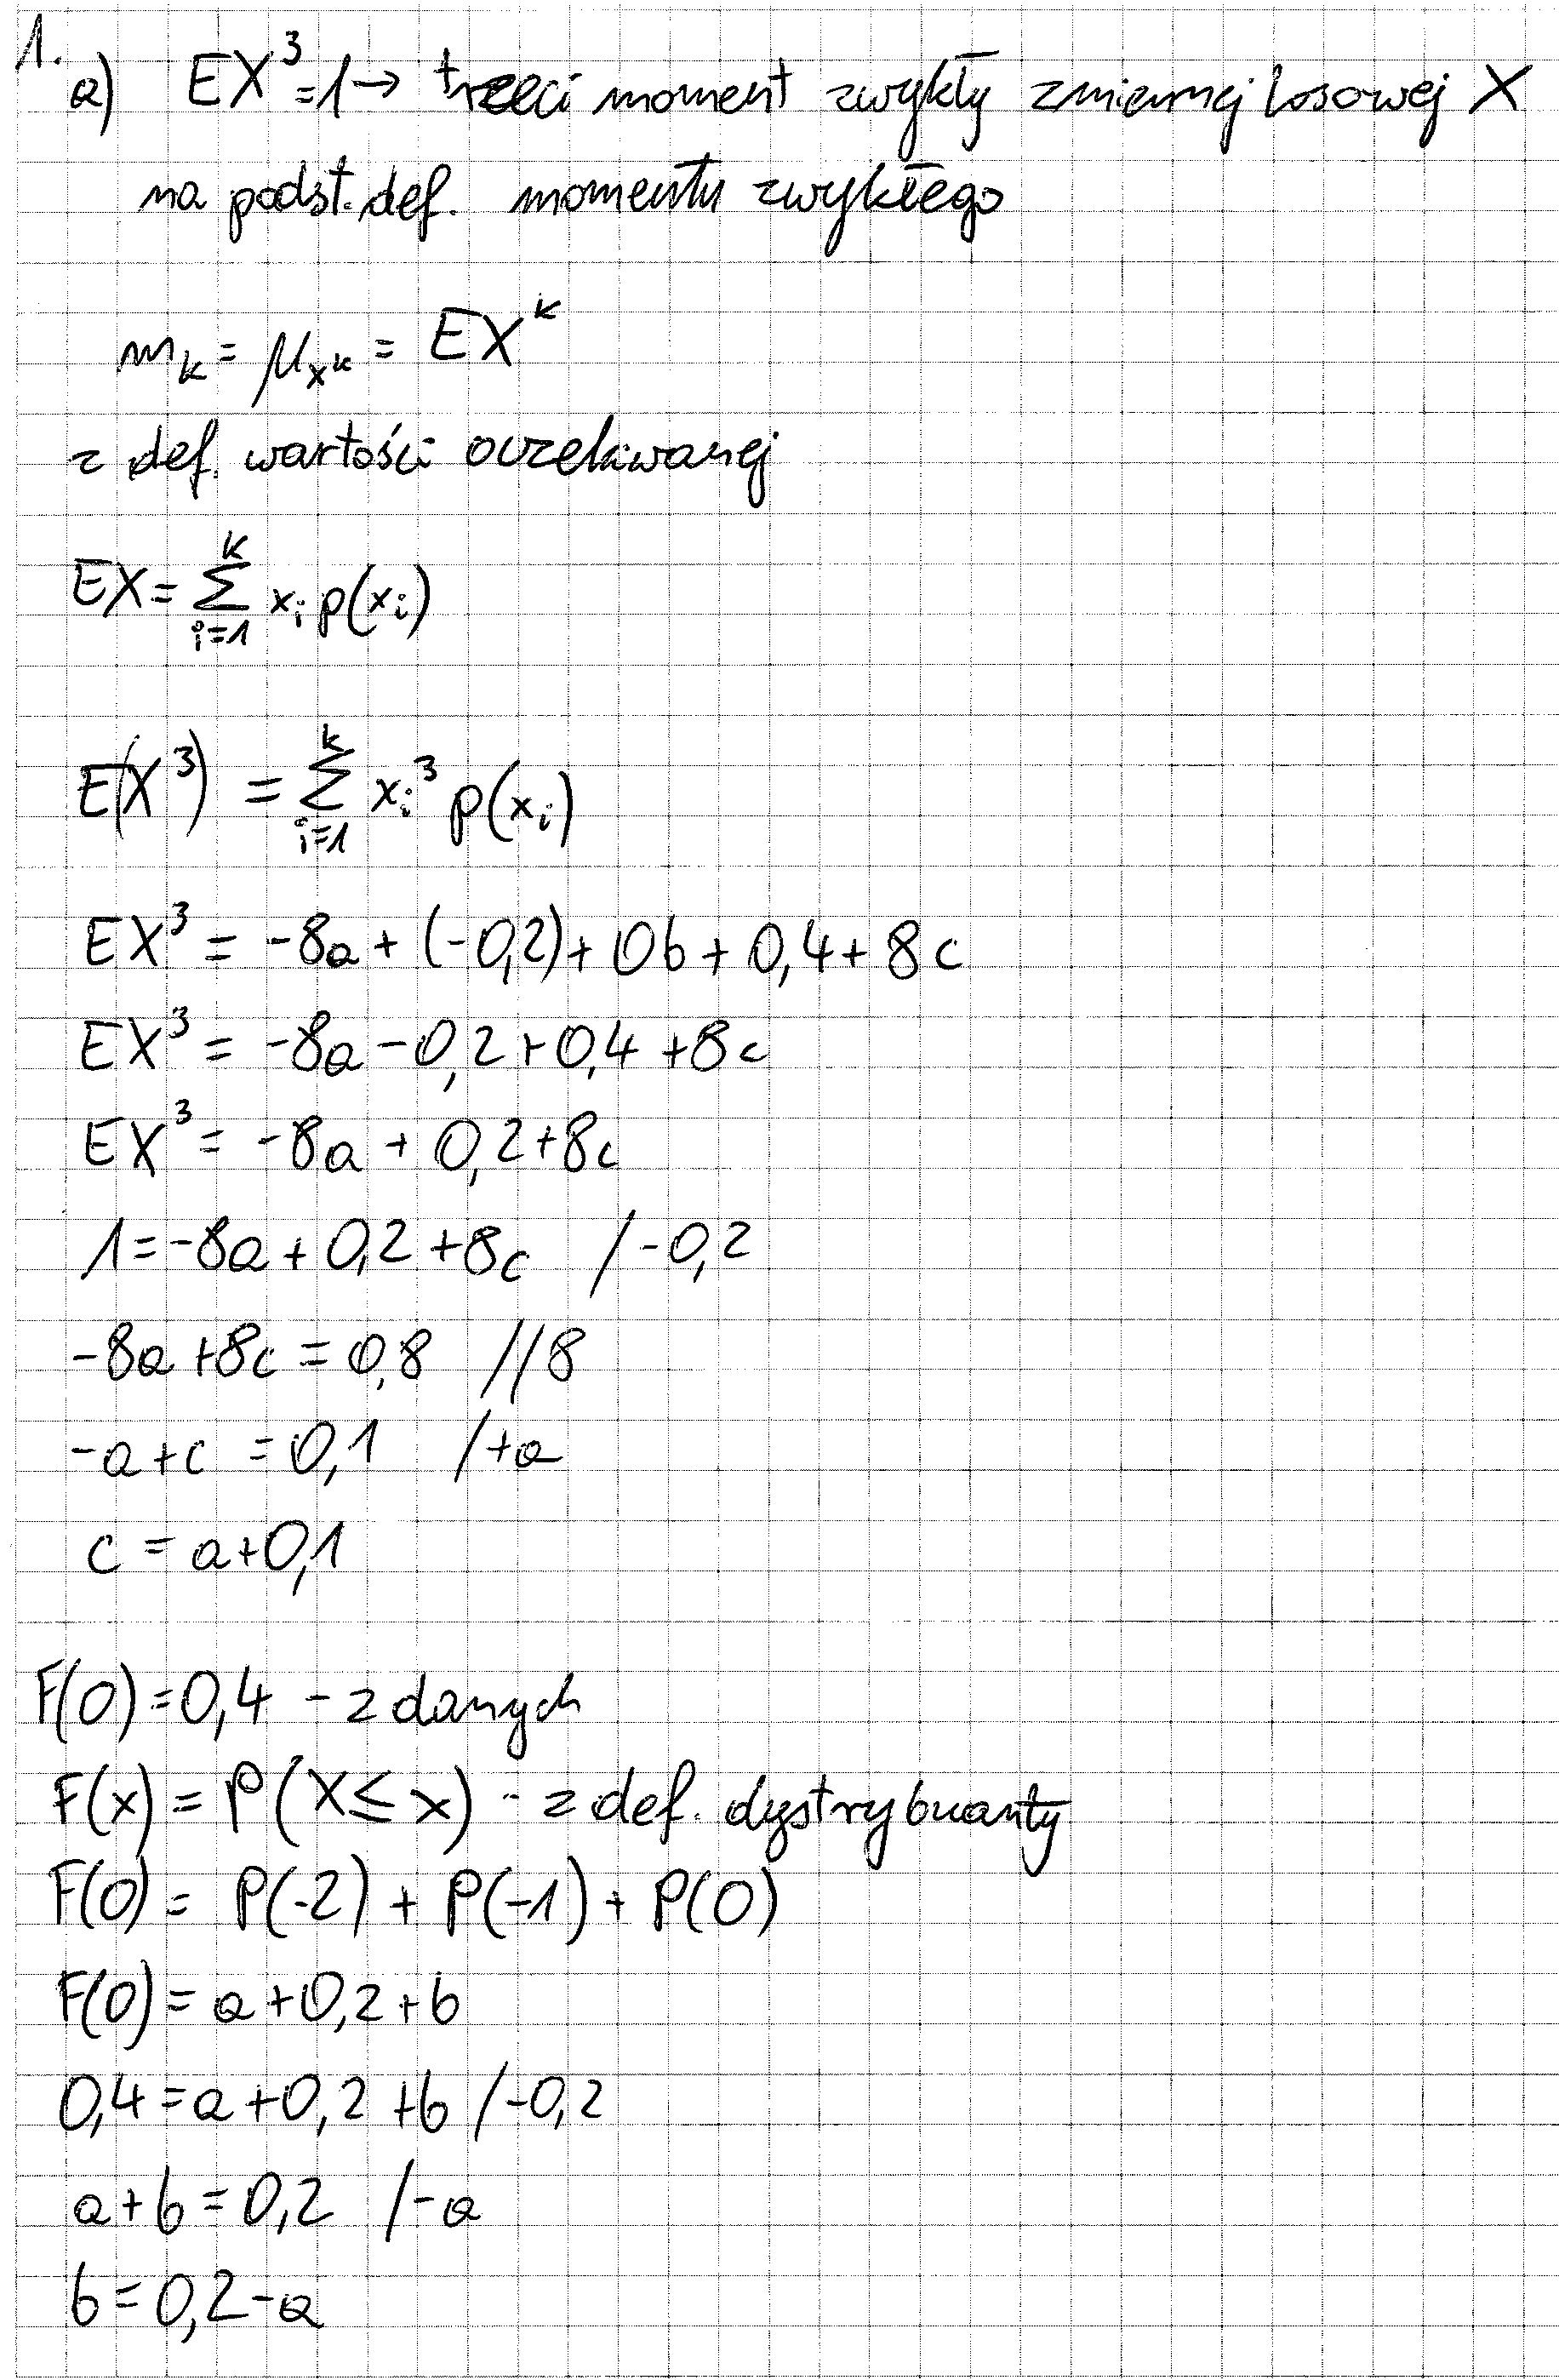 1.
a) EX³=1→ trzeci moment zwykły zmiennej losowej X
na podst. def. momentu zwykłego
m_k = μ_x^k = EX^k
z def. wartości oczekiwanej
EX = ∑_{i=1}^{k} x_i p(x_i)
E(X³) = ∑_{i=1}^{k} x_i³ p(x_i)
EX³ = -8a + (-0,2) + 0b + 0,4 + 8c
EX³ = -8a -0,2 + 0,4 + 8c
EX³ = -8a + 0,2 + 8c
1 = -8a + 0,2 + 8c /-0,2
-8a + 8c = 0,8 //8
-a + c = 0,1 /+a
c = a+0,1
F(0) = 0,4 - z danych
F(x) = P(X ≤ x) - z def. dystrybuanty
F(0) = P(-2) + P(-1) + P(0)
F(0) = a + 0,2 + b
0,4 = a + 0,2 + b /-0,2
a + b = 0,2 /-a
b = 0,2 - a